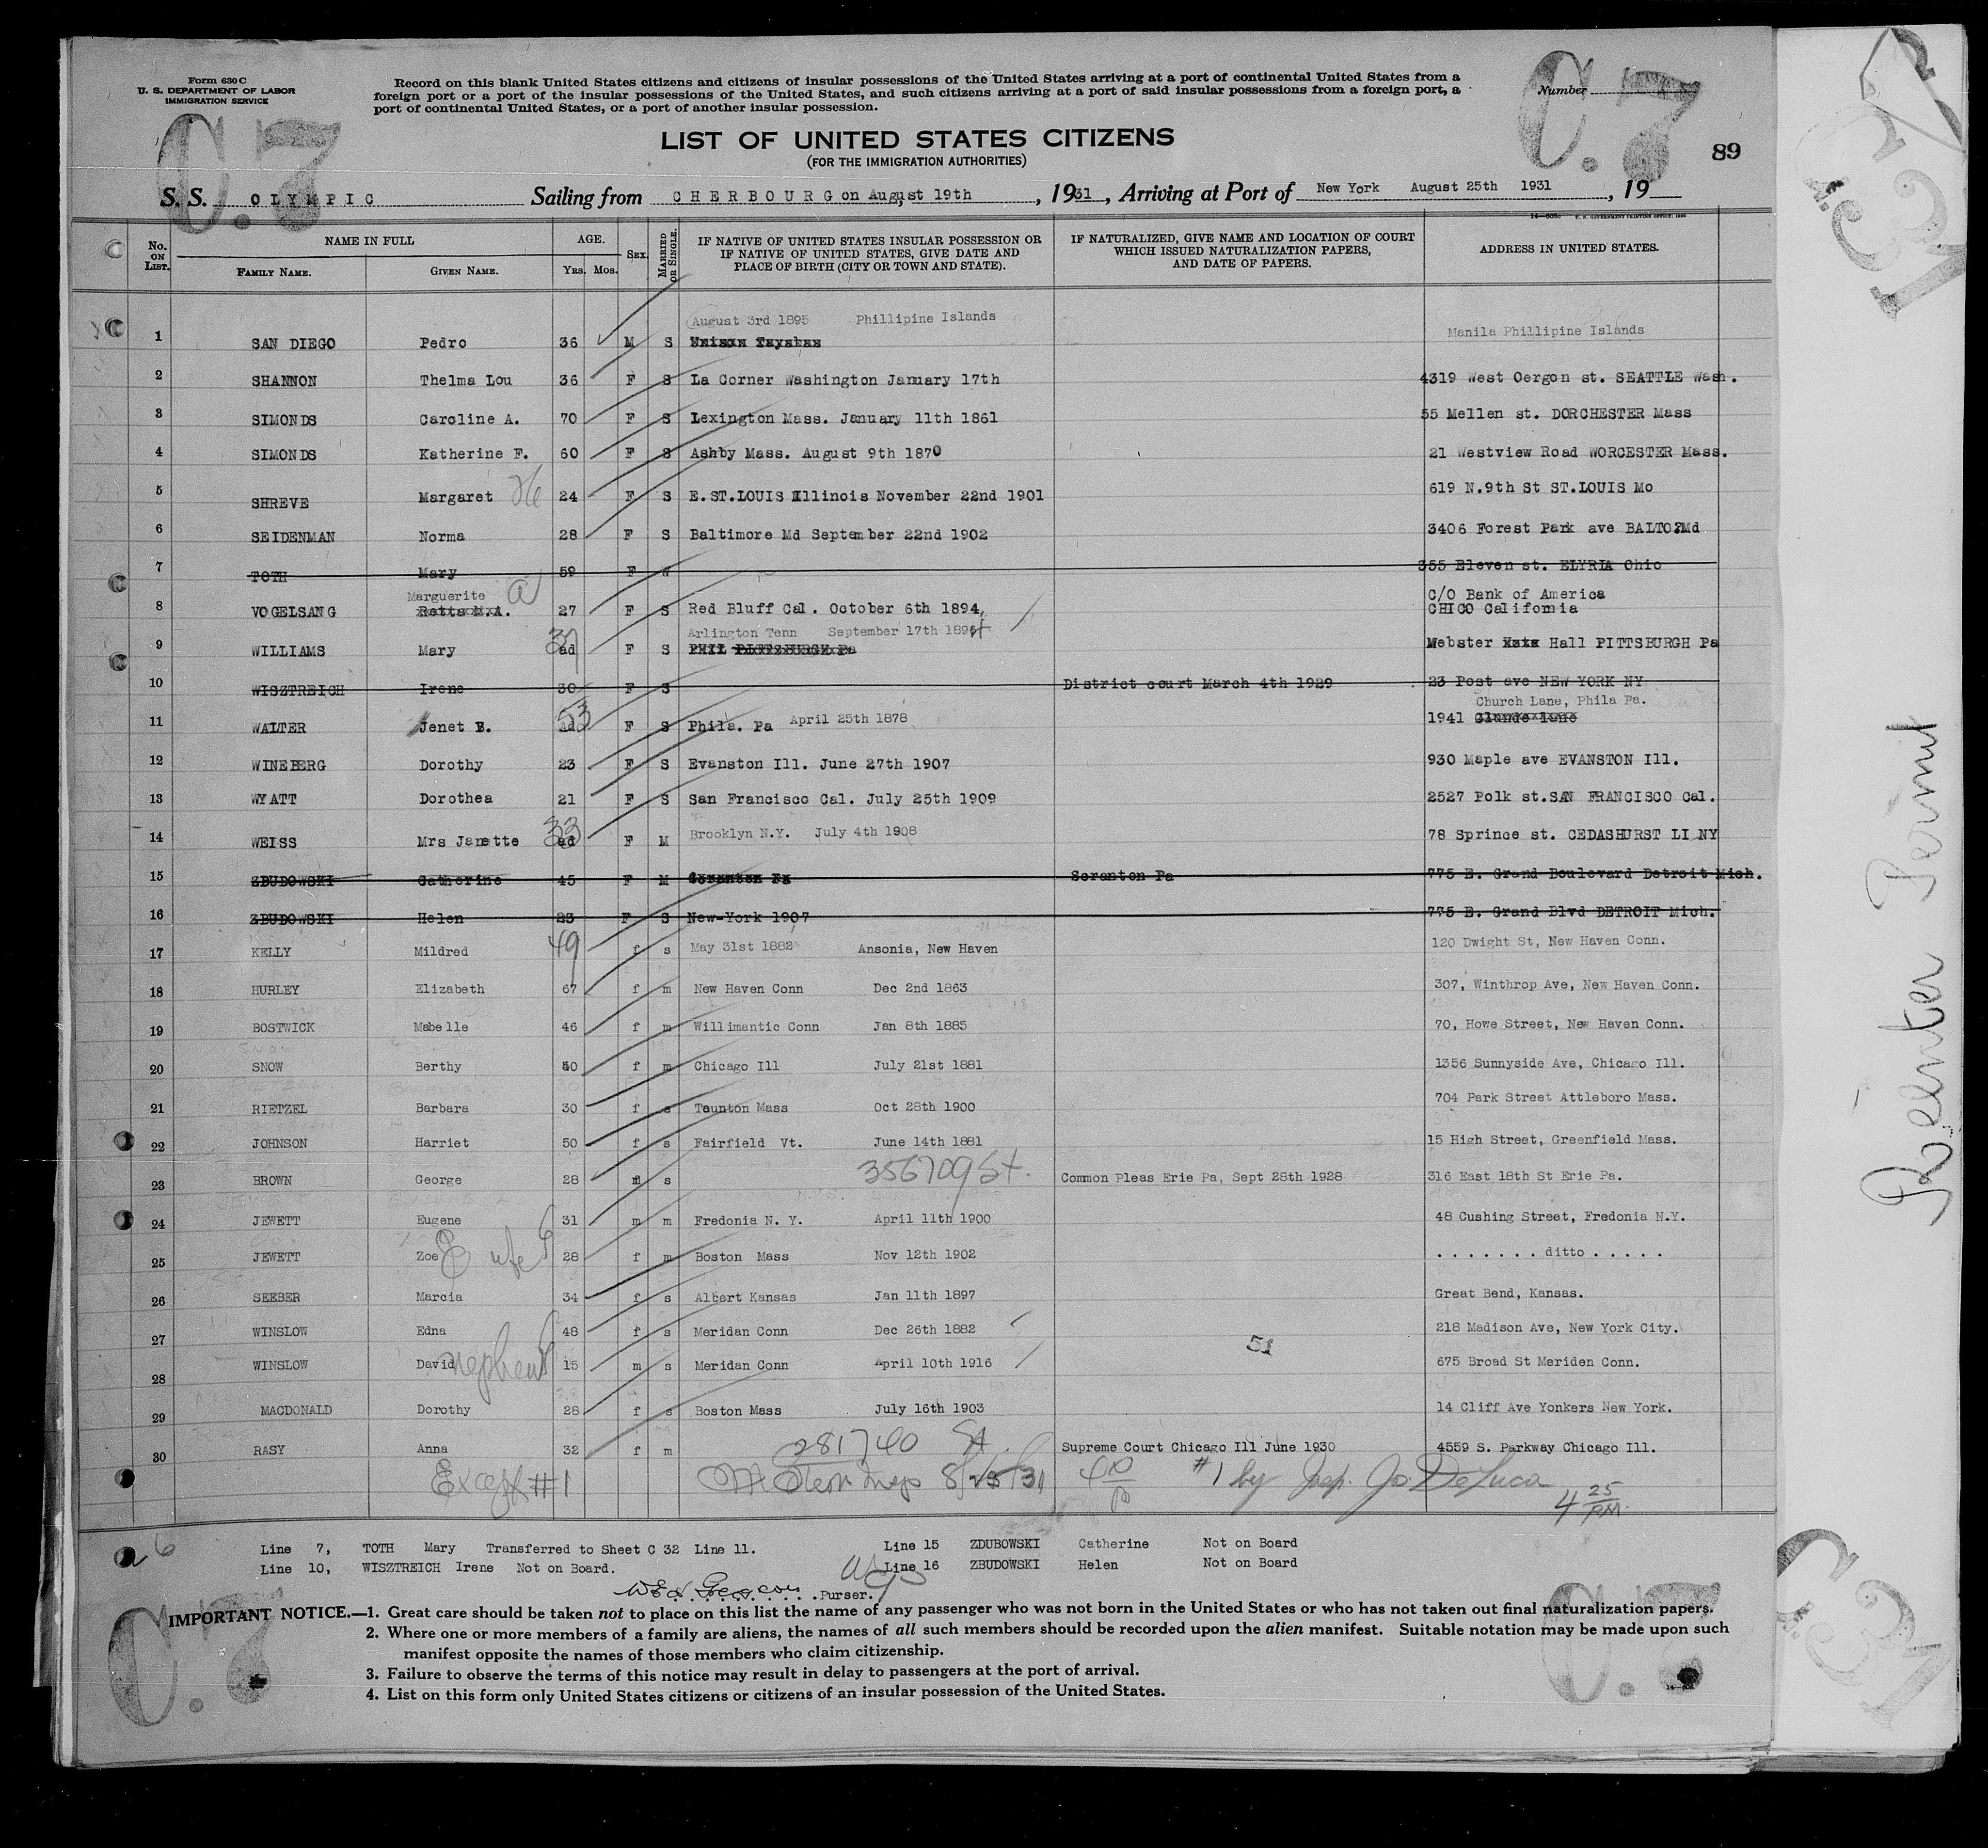 Form 630 C
U. S. DEPARTMENT OF LABOR
IMMIGRATION SERVICE
Record on this blank United States citizens and citizens of insular possessions of the United States arriving at a port of continental United States from a
foreign port or a port of the insular possessions of the United States, and such citizens arriving at a port of said insular possessions from a foreign port, a
port of continental United States, or a port of another insular possession.
Number
C.7 C.7
89
LIST OF UNITED STATES CITIZENS
(FOR THE IMMIGRATION AUTHORITIES)
S. S. OLYMPIC Sailing from CHERBOURG on August 19th, 1931, Arriving at Port of New York August 25th 1931, 19
No. ON LIST. NAME IN FULL FAMILY NAME. GIVEN NAME. AGE. Yrs. Mos. SEX. MARRIED OR SINGLE. IF NATIVE OF UNITED STATES INSULAR POSSESSION OR IF NATIVE OF UNITED STATES, GIVE DATE AND PLACE OF BIRTH (CITY OR TOWN AND STATE). IF NATURALIZED, GIVE NAME AND LOCATION OF COURT WHICH ISSUED NATURALIZATION PAPERS, AND DATE OF PAPERS. ADDRESS IN UNITED STATES.
August 3rd 1895 Phillipine Islands
1 SAN DIEGO Pedro 36 M S Manila Phillipine Islands
2 SHANNON Thelma Lou 36 F S La Corner Washington January 17th 4319 West Oergon st. SEATTLE Wash.
3 SIMONDS Caroline A. 70 F S Lexington Mass. January 11th 1861 55 Mellen st. DORCHESTER Mass
4 SIMONDS Katherine F. 60 F S Ashby Mass. August 9th 1870 21 Westview Road WORCESTER Mass.
5 SHREVE Margaret 24 F S E.ST.LOUIS Illinois November 22nd 1901 619 N.9th St ST.LOUIS Mo
6 SEIDENMAN Norma 28 F S Baltimore Md September 22nd 1902 3406 Forest Park ave BALTO.Md
7 TOTH Mary 59 F W 355 Eleven st. ELYRIA Ohio
Marguerite a C/O Bank of America
8 VOGELSANG Retta M.A. 27 F S Red Bluff Cal. October 6th 1894, CHICO California
37 Arlington Tenn September 17th 1894
9 WILLIAMS Mary ad F S PHIL PITTSBURGH Pa Webster Hall PITTSBURGH Pa
10 WISZTREICH Irene 30 F S District court March 4th 1929 23 Post ave NEW YORK NY
53 Church Lane, Phila Pa.
11 WALTER Jenet E. Ad F S Phila. Pa April 25th 1878 1941
12 WINEBERG Dorothy 23 F S Evanston Ill. June 27th 1907 930 Maple ave EVANSTON Ill.
13 WYATT Dorothea 21 F S San Francisco Cal. July 25th 1909 2527 Polk st.SAN FRANCISCO Cal.
14 WEISS Mrs Janette ad 33 F M Brooklyn N.Y. July 4th 1908 78 Sprince st. CEDASHURST LI NY
15 ZBUDOWSKI Catherine 45 F M Scranton Pa Scranton Pa 775 E. Grand Boulevard Detroit Mich.
16 ZBUDOWSKI Helen 23 F S New-York 1907 775 E. Grand Blvd DETROIT Mich.
17 KELLY Mildred 49 f s May 31st 1882 Ansonia, New Haven 120 Dwight St, New Haven Conn.
18 HURLEY Elizabeth 67 f m New Haven Conn Dec 2nd 1863 307, Winthrop Ave, New Haven Conn.
19 BOSTWICK Mabelle 46 f m Willimantic Conn Jan 8th 1885 70, Howe Street, New Haven Conn.
20 SNOW Berthy 50 f m Chicago Ill July 21st 1881 1356 Sunnyside Ave, Chicago Ill.
21 RIETZEL Barbara 30 f s Taunton Mass Oct 28th 1900 704 Park Street Attleboro Mass.
22 JOHNSON Harriet 50 f s Fairfield Vt. June 14th 1881 15 High Street, Greenfield Mass.
23 BROWN George 28 m s 356709 St. Common Pleas Erie Pa, Sept 28th 1928 316 East 18th St Erie Pa.
24 JEWETT Eugene 31 m m Fredonia N. Y. April 11th 1900 48 Cushing Street, Fredonia N.Y.
25 JEWETT Zoe E wife 28 f m Boston Mass Nov 12th 1902 . . . . . . . ditto . . . . .
26 SEEBER Marcia 34 f s Albert Kansas Jan 11th 1897 Great Bend, Kansas.
27 WINSLOW Edna 48 f s Meridan Conn Dec 26th 1882 218 Madison Ave, New York City.
51
28 WINSLOW David nephew 15 m s Meridan Conn April 10th 1916 675 Broad St Meriden Conn.
29 MACDONALD Dorothy 28 f s Boston Mass July 16th 1903 14 Cliff Ave Yonkers New York.
30 RASY Anna 32 f m 281740 St. Supreme Court Chicago Ill June 1930 4559 S. Parkway Chicago Ill.
Except #1 Insp 8/25/31 #1 by Insp. Jo. DeLuca 4 25 PM
Line 7, TOTH Mary Transferred to Sheet C 32 Line 11. Line 15 ZDUBOWSKI Catherine Not on Board
Line 10, WISZTREICH Irene Not on Board. Line 16 ZBUDOWSKI Helen Not on Board
Purser.
IMPORTANT NOTICE.—1. Great care should be taken not to place on this list the name of any passenger who was not born in the United States or who has not taken out final naturalization papers.
2. Where one or more members of a family are aliens, the names of all such members should be recorded upon the alien manifest. Suitable notation may be made upon such
manifest opposite the names of those members who claim citizenship.
3. Failure to observe the terms of this notice may result in delay to passengers at the port of arrival.
4. List on this form only United States citizens or citizens of an insular possession of the United States.
C.7 C.7
Reenter Permit